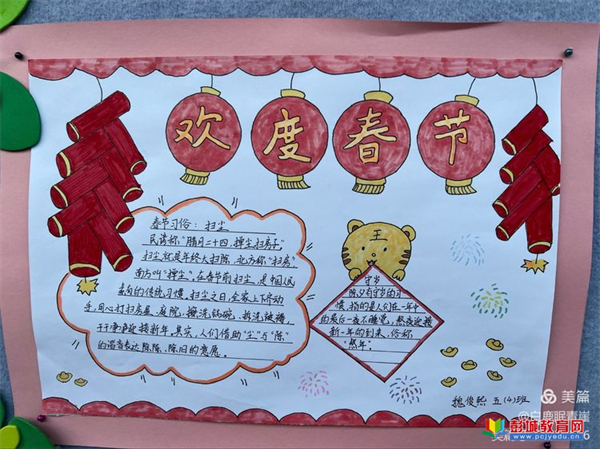 欢度春节
春节习俗：扫尘
民谚称"腊月二十四，掸尘扫房子"
扫尘就是年终大扫除，北方称"扫房"
南方叫"掸尘"。在春节前扫尘，是中国人民
素有的传统习惯。扫尘之日，全家上下齐动
手，用心打扫房屋、庭院，擦洗锅碗、拆洗被褥，
干干净净迎接新年。其实，人们借助"尘"与"陈"
的谐音表达除陈、除旧的意愿。
守岁
除夕有守岁的习
惯，指的是人们在一年中
的最后一夜不睡觉，熬夜迎接
新一年的到来，俗称
"熬年"。
魏俊熙 五(4)班
美篇
@白鹿眠青崖
彭城教育网
www.pcjyedu.cn
6